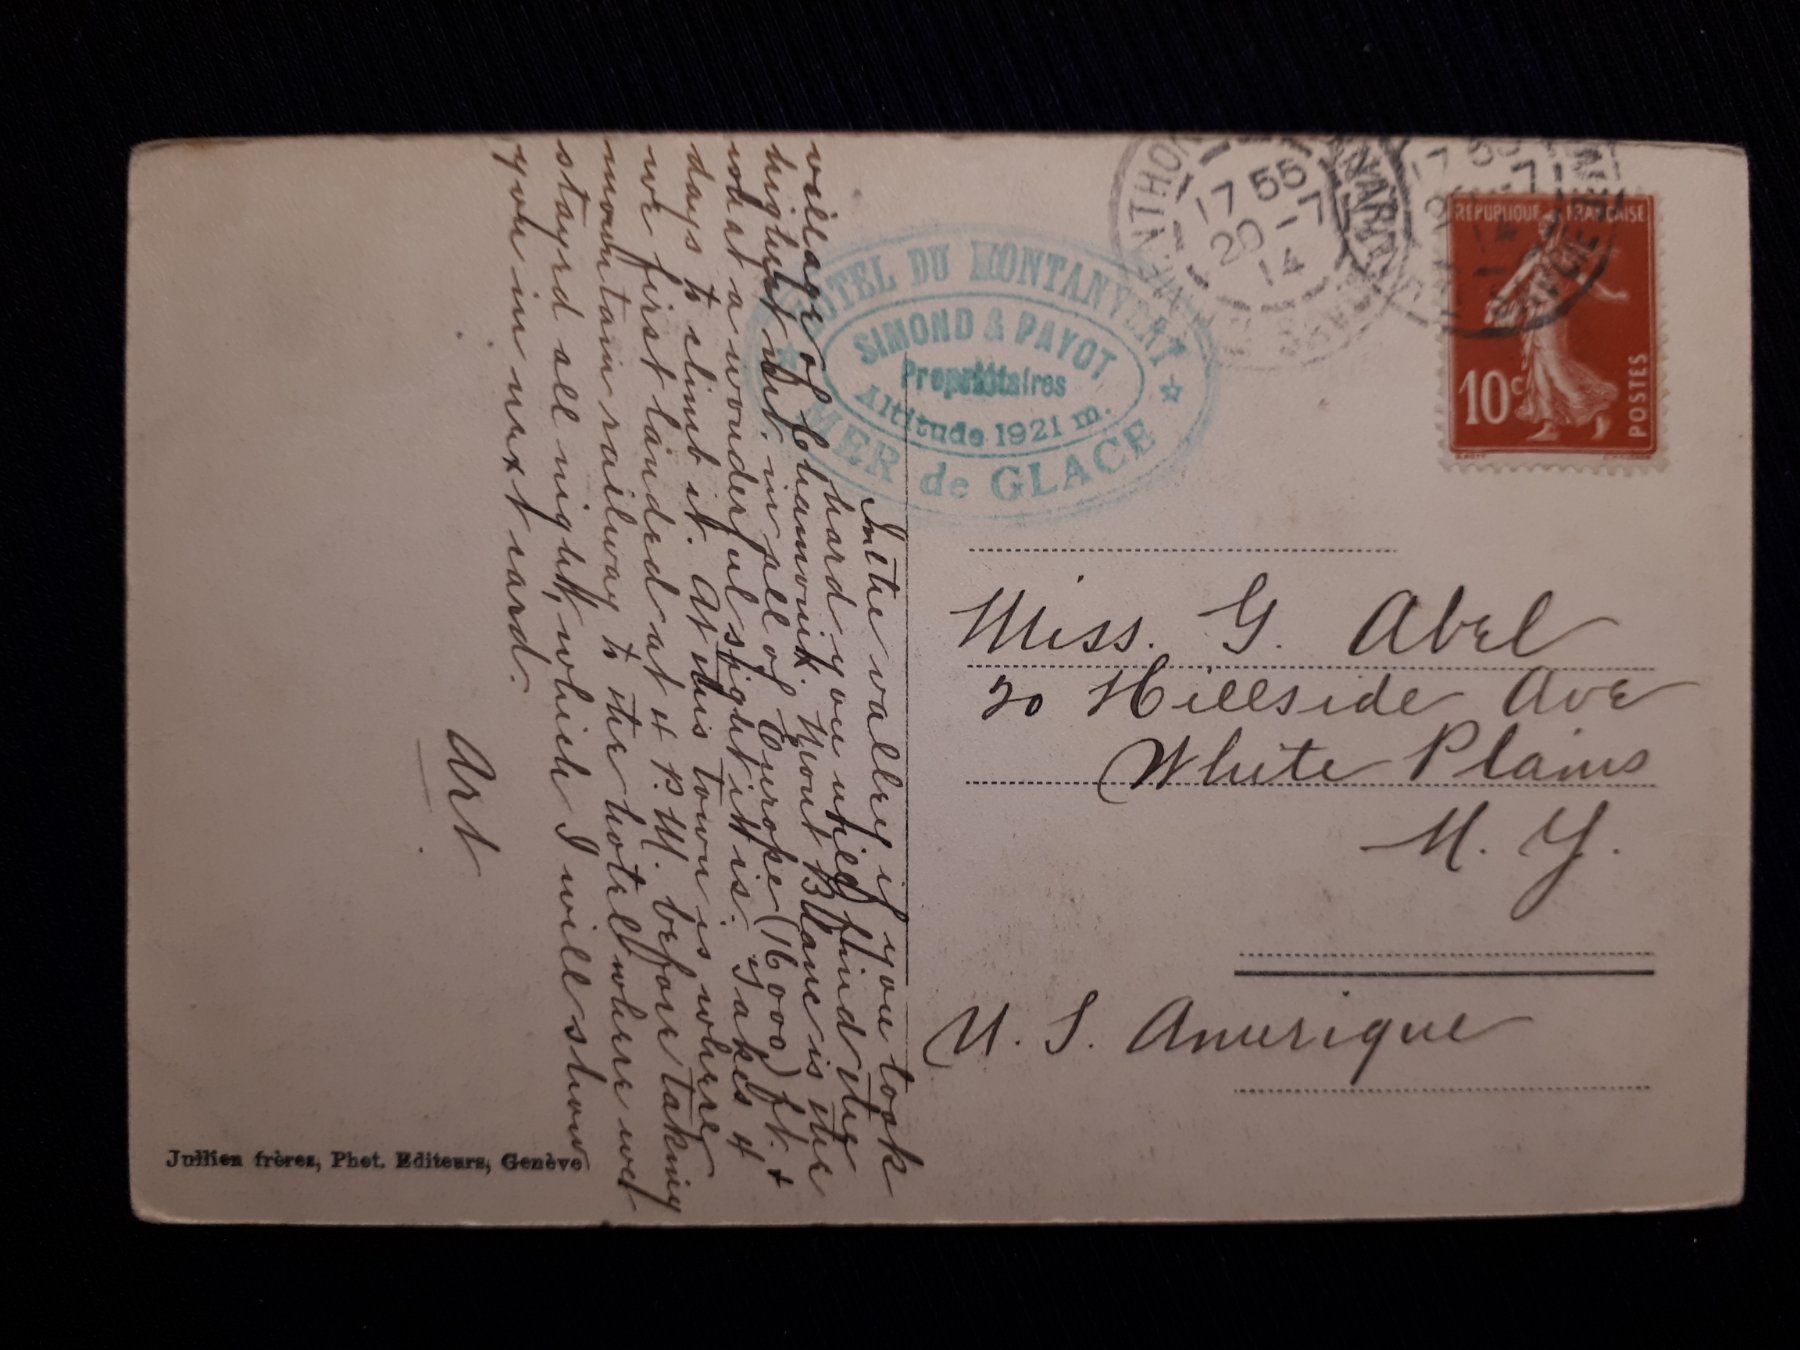 In the valley if you look
hard you will find the
village of Chamonix. Mont Blanc is the
highest mt. in all of Europe (16000) ft. +
what a wonderful sight it is. Takes 4
days to climb it. At this town is where
we first landed at 4 P.M. before taking
mountain railway to the hotel where we
stayed all night, which I will show
you in next card.
Art
HOTEL DU MONTANVERT
SIMOND & PAYOT
Propriétaires
Altitude 1921 m.
MER de GLACE
17 55
20 - 7
14
REPUBLIQUE FRANÇAISE
10c
POSTES
Miss. G. Abel
20 Hillside Ave
White Plains
N. Y.
U. S. Amerique
Jullien frères, Phot. Editeurs, Genève